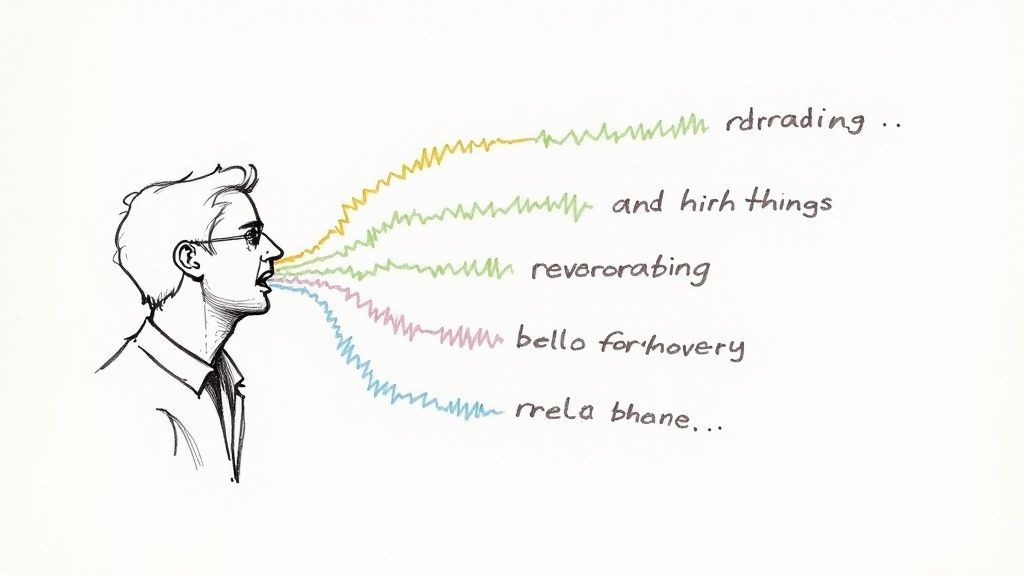 rdrrading ..
and hirh things
revërorabing
bello for'hovery
rrela bhane...